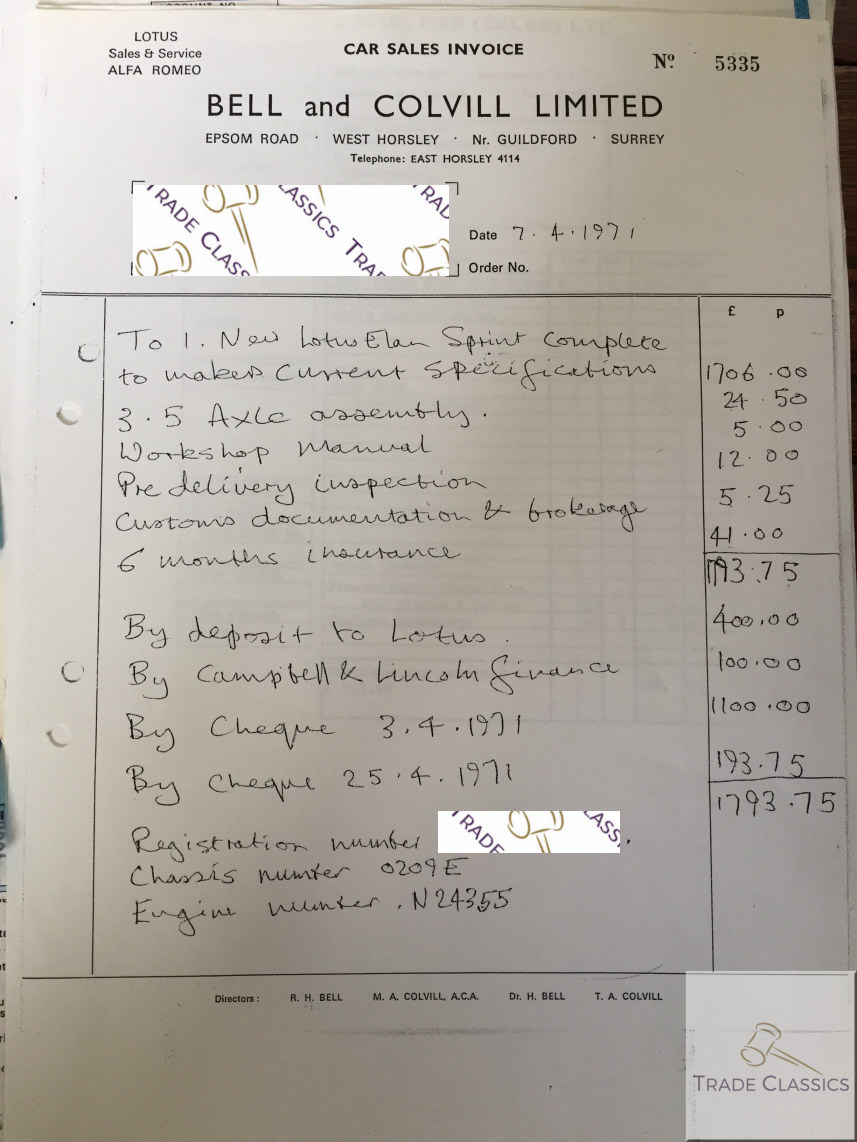 LOTUS
Sales & Service
ALFA ROMEO
CAR SALES INVOICE
Nº 5335
BELL and COLVILL LIMITED
EPSOM ROAD · WEST HORSLEY · Nr. GUILDFORD · SURREY
Telephone: EAST HORSLEY 4114
TRADE CLASSICS TRADE
Date 7.4.1971
Order No.
£ p
To 1. New Lotus Elan Sprint complete
to makers current specifications 1706.00
3.5 Axle assembly. 24.50
Workshop Manual 5.00
Pre delivery inspection 12.00
Customs documentation & brokerage 5.25
6 months insurance 41.00
1793.75
By deposit to Lotus. 400.00
By Campbell & Lincoln finance 100.00
By Cheque 3.4.1971 1100.00
By cheque 25.4.1971 193.75
1793.75
Registration number TRADE CLASS.
Chassis number 0209E
Engine number. N24355
Directors: R. H. BELL M. A. COLVILL, A.C.A. Dr. H. BELL T. A. COLVILL
TRADE CLASSICS